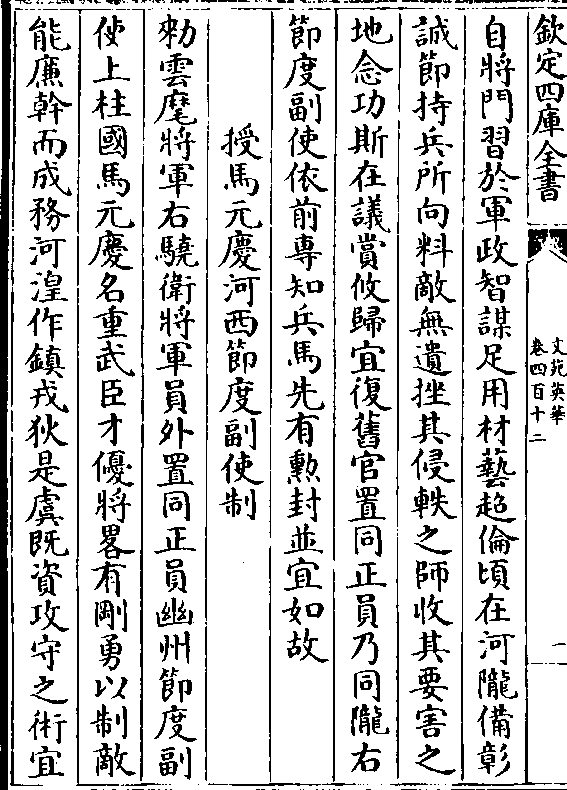 欽定四庫全書
文苑英華
卷四百十二
一
自將門習於軍政智謀足用材藝超倫頃在河隴備彰
誠節持兵所向料敵無遺挫其侵軼之師收其要害之
地念功斯在議賞攸歸宜復舊官置同正員乃同隴右
節度副使依前專知兵馬先有勲封並宜如故
授馬元慶河西節度副使制
勑雲麾將軍右驍衛將軍員外置同正員幽州節度副
使上柱國馬元慶名重武臣才優將畧有剛勇以制敵
能廉幹而成務河湟作鎮戎狄是虞既資攻守之術宜